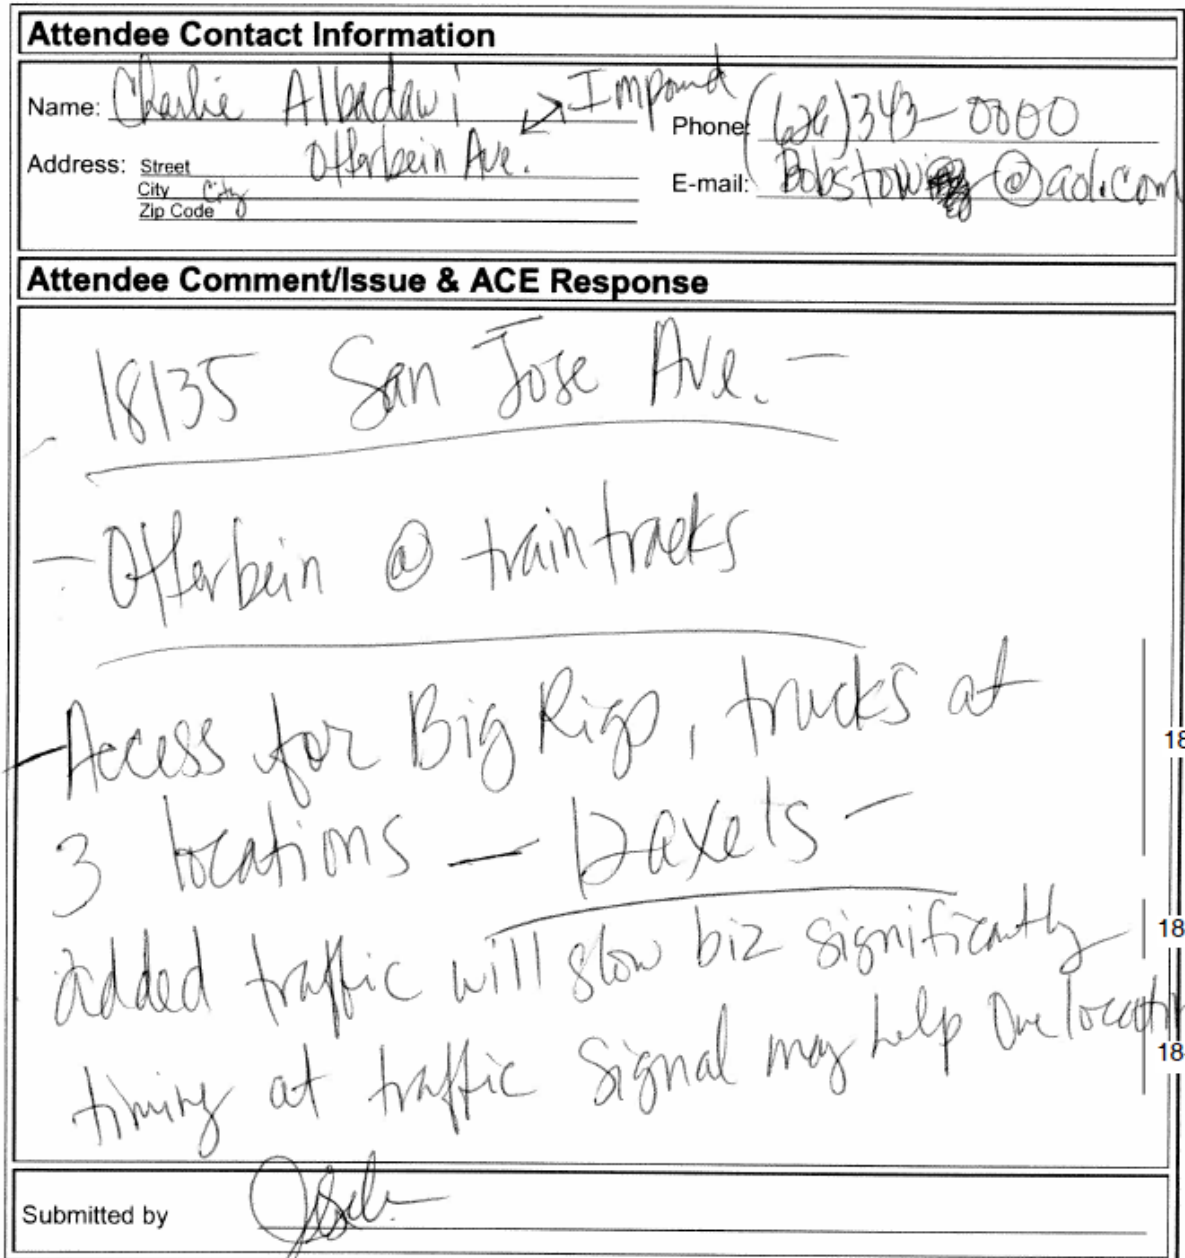 Attendee Contact Information
Name: Charlie Albadawi
Impound
Phone: (626)343-0000
Address: Street Otterbein Ave.
City City
Zip Code
E-mail: Bobstow @aol.com
Attendee Comment/Issue & ACE Response
18135 San Jose Ave. -
- Otterbein @ train tracks
- Access for Big Rigs, trucks at
3 locations —
added traffic will slow biz significantly
timing at traffic signal may help one location
18
18
18
Submitted by